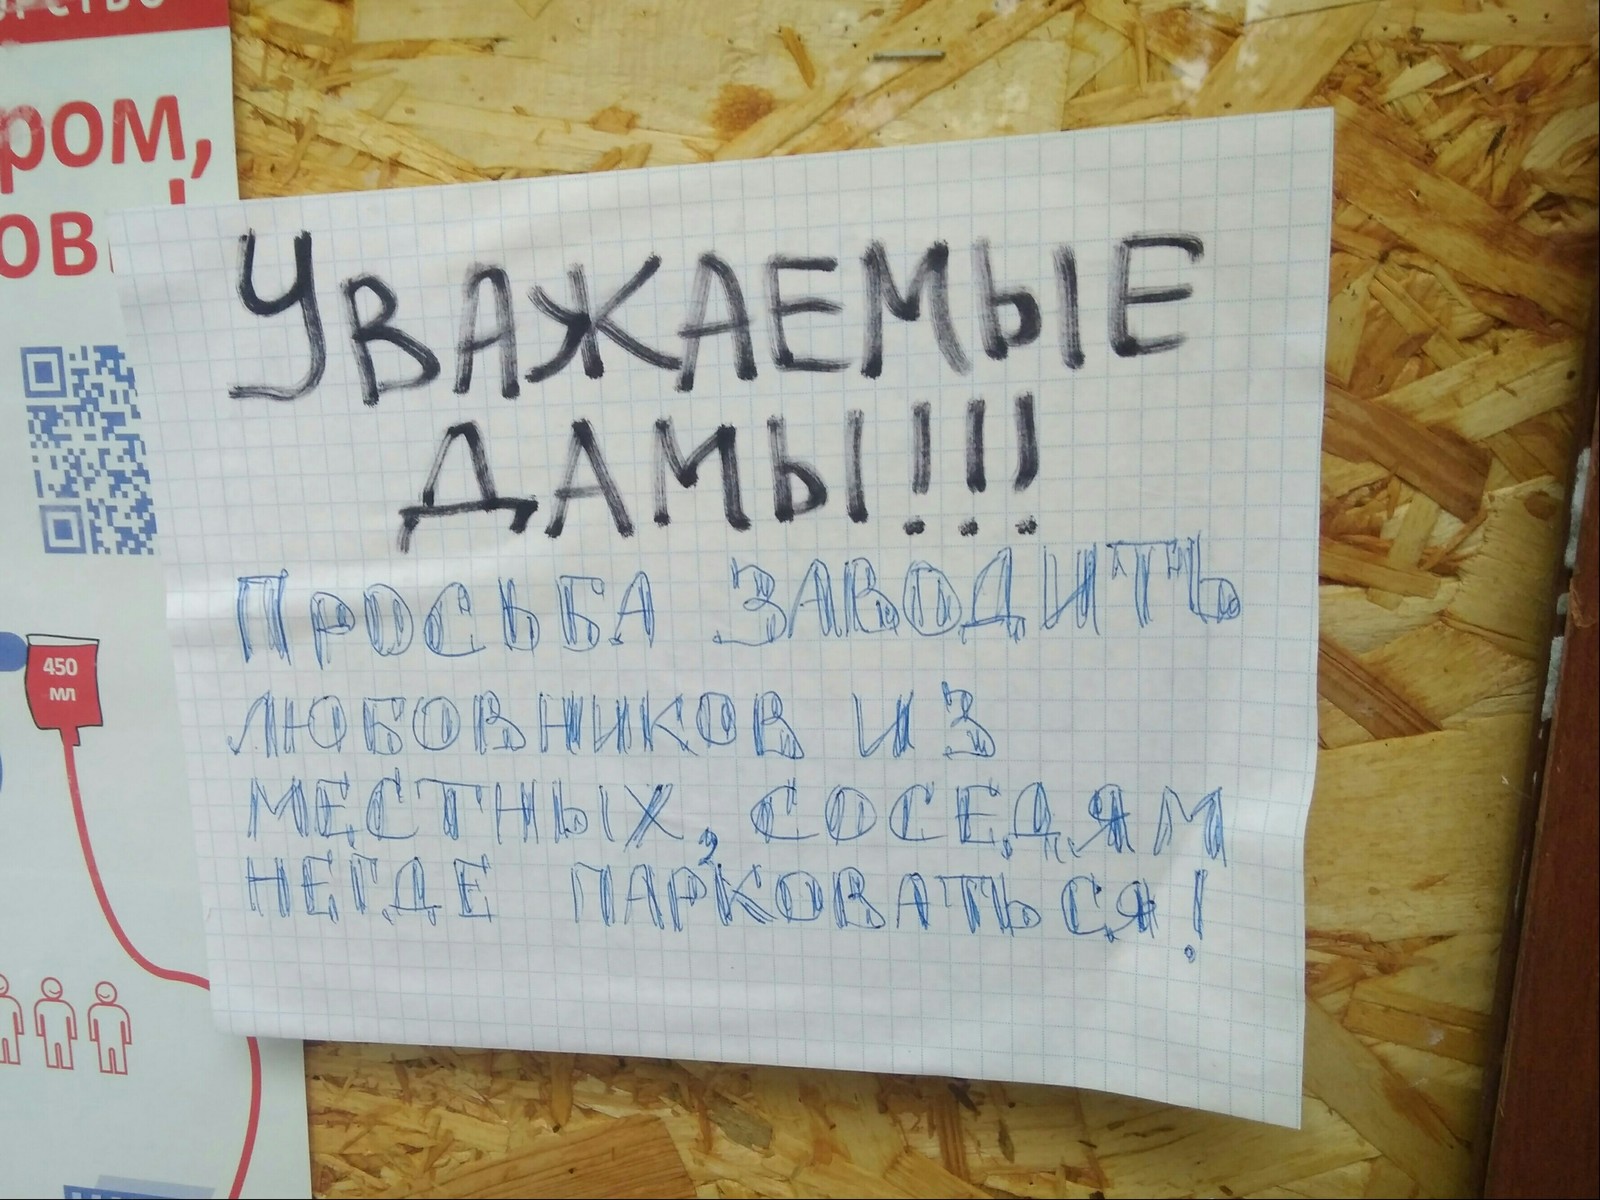 ром,
УВАЖАЕМЫЕ
ДАМЫ!!!
ПРОСЬБА ЗАВОДИТЬ
ЛЮБОВНИКОВ ИЗ
МЕСТНЫХ, СОСЕДЯМ
НЕГДЕ ПАРКОВАТЬСЯ!
450
мл